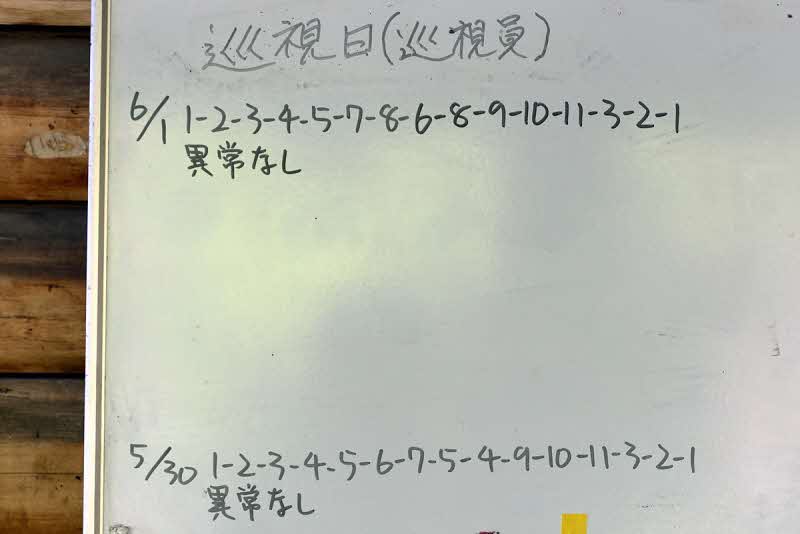 巡視日(巡視員)
6/1 1-2-3-4-5-7-8-6-8-9-10-11-3-2-1
異常なし
5/30 1-2-3-4-5-6-7-5-4-9-10-11-3-2-1
異常なし